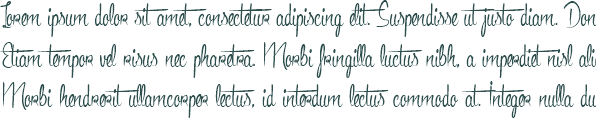 Lorem ipsum dolor sit amet, consectetur adipiscing elit. Suspendisse ut justo diam. Don
Etiam tempor vel risus nec pharetra. Morbi fringilla luctus nibh, a imperdiet nisl ali
Morbi hendrerit ullamcorper lectus, id interdum lectus commodo at. Integer nulla du